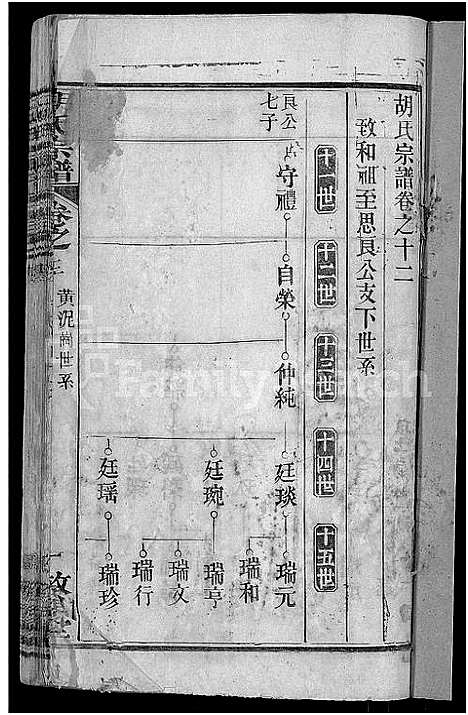 胡氏宗譜卷之十二
致和祖至思良公支下世系
十一世
十二世
十三世
十四世
十五世
良公
七子
守禮
自榮
仲純
廷琰
廷琬
廷瑶
瑞元
瑞和
瑞亨
瑞文
瑞行
瑞珍
氏宗譜
卷之
黃泥崗世系
FamilySearch